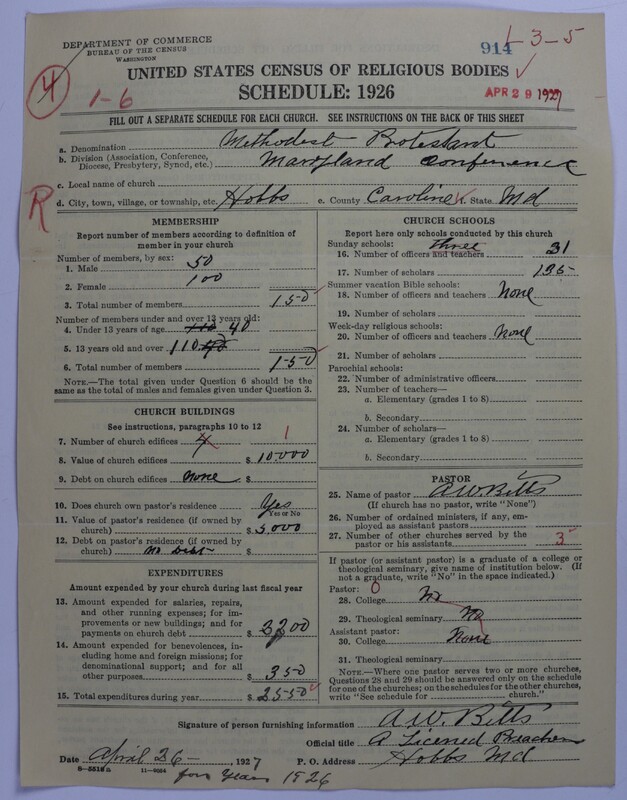 DEPARTMENT OF COMMERCE
BUREAU OF THE CENSUS
WASHINGTON
914
1-3-5
4
1-6
UNITED STATES CENSUS OF RELIGIOUS BODIES
SCHEDULE: 1926
APR 29 1927
FILL OUT A SEPARATE SCHEDULE FOR EACH CHURCH. SEE INSTRUCTIONS ON THE BACK OF THIS SHEET
a. Denomination Methodest Protestant
b. Division (Association, Conference, Diocese, Presbytery, Synod, etc.) Maryland Conference
c. Local name of church
R
d. City, town, village, or township, etc. Hobbs e. County Caroline f. State Md
MEMBERSHIP
Report number of members according to definition of
member in your church
Number of members, by sex:
1. Male 50
2. Female 100
3. Total number of members 150
Number of members under and over 13 years old:
4. Under 13 years of age 110 40
5. 13 years old and over 110 40
6. Total number of members 150
NOTE.—The total given under Question 6 should be the
same as the total of males and females given under Question 3.
CHURCH BUILDINGS
See instructions, paragraphs 10 to 12
7. Number of church edifices 4 1
8. Value of church edifices $ 10.000
9. Debt on church edifices none $
10. Does church own pastor's residence Yes
Yes or No
11. Value of pastor's residence (if owned by
church) $ 5000
12. Debt on pastor's residence (if owned by
church) no Debt $
EXPENDITURES
Amount expended by your church during last fiscal year
13. Amount expended for salaries, repairs,
and other running expenses; for im-
provements or new buildings; and for
payments on church debt $ 2200
14. Amount expended for benevolences,
including home and foreign missions; for
denominational support; and for all
other purposes $ 350
15. Total expenditures during year $ 2550
CHURCH SCHOOLS
Report here only schools conducted by this church
Sunday schools: three
16. Number of officers and teachers 31
17. Number of scholars 135
Summer vacation Bible schools:
18. Number of officers and teachers None
19. Number of scholars
Week-day religious schools:
20. Number of officers and teachers none
21. Number of scholars
Parochial schools:
22. Number of administrative officers
23. Number of teachers—
a. Elementary (grades 1 to 8)
b. Secondary
24. Number of scholars—
a. Elementary (grades 1 to 8)
b. Secondary
PASTOR
25. Name of pastor A W Bitts
(If church has no pastor, write "None")
26. Number of ordained ministers, if any, em-
ployed as assistant pastors
27. Number of other churches served by the
pastor or his assistants 3
If pastor (or assistant pastor) is a graduate of a college or
theological seminary, give name of institution below. (If
not a graduate, write "No" in the space indicated.)
Pastor: 0
28. College No
29. Theological seminary No
Assistant pastor:
30. College None
31. Theological seminary
NOTE.—Where one pastor serves two or more churches,
Questions 28 and 29 should be answered only on the schedule
for one of the churches; on the schedules for the other churches,
write "See schedule for church."
Signature of person furnishing information A.W. Bitts
Official title A Licened Preacher
Date April 26 , 1927 P. O. Address Hobbs Md
8-5518a 11-9054
for Year 1926